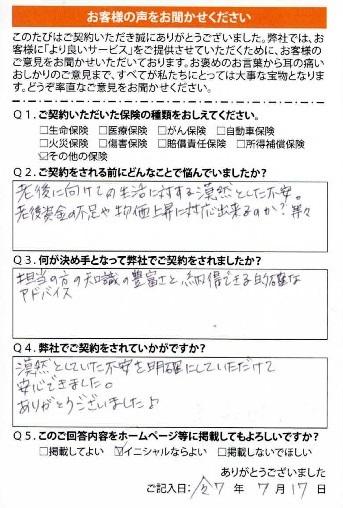 お客様の声をお聞かせください
このたびはご契約いただき誠にありがとうございました。弊社では、お客
様に「より良いサービス」をご提供させていただくために、お客様の
ご意見をお聞かせいただいております。お褒めのお言葉から耳の痛い
おしかりのご意見まで、すべてが私たちにとっては大事な宝物となりま
す。どうぞ率直なご意見をお聞かせください。
Q1. ご契約いただいた保険の種類をおしえてください。
□生命保険 □医療保険 □がん保険 □自動車保険
□火災保険 □傷害保険 □賠償責任保険 □所得補償保険
☑その他の保険
Q2. ご契約をされる前にどんなことで悩んでいましたか?
老後に向けての生活に対する漠然とした不安。
老後資金の不足や物価上昇に対応出来るのか? 等々
Q3. 何が決め手となって弊社でご契約をされましたか?
担当の方の知識の豊富さと、納得できる的確な
アドバイス
Q4. 弊社でご契約をされていかがですか?
漠然としていた不安を明確にしていただけて
安心できました。
ありがとうございました♪
Q5. このご回答内容をホームページ等に掲載してもよろしいですか?
□掲載してよい ☑イニシャルならよい □掲載しないでほしい
ありがとうございました
ご記入日: 令7 年 7 月 17 日